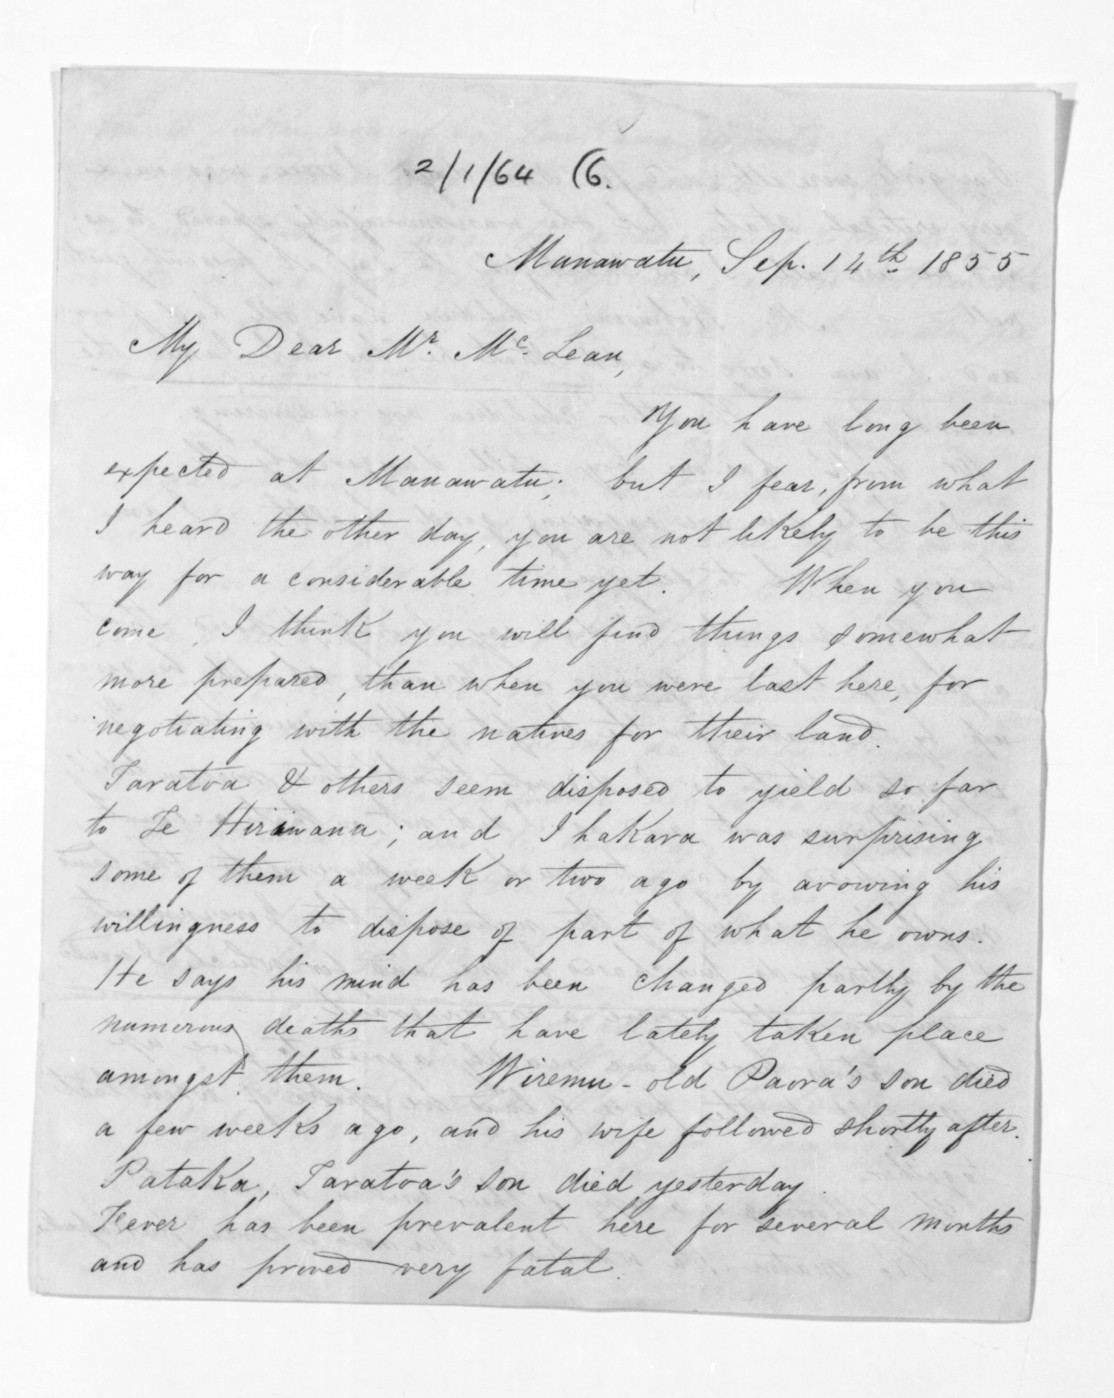 2/1/64 (6.
Manawatu, Sep. 14th 1855
My Dear Mr. Mc. Lean,
You have long been
expected at Manawatu; but I fear, from what
I heard the other day, you are not likely to be this
way for a considerable time yet. When you
come, I think you will find things somewhat
more prepared, than when you were last here, for
negotiating with the natives for their land.
Taratoa & others seem disposed to yield so far
to Te Hiriwana; and Ihakara was surprising
some of them a week or two ago by avowing his
willingness to dispose of part of what he owns.
He says his mind has been changed partly by the
numerous deaths that have lately taken place
amongst them. Wiremu - old Paora's son died
a few weeks ago, and his wife followed shortly after.
Pataka, Taratoa's son died yesterday.
Fever has been prevalent here for several months
and has proved very fatal.